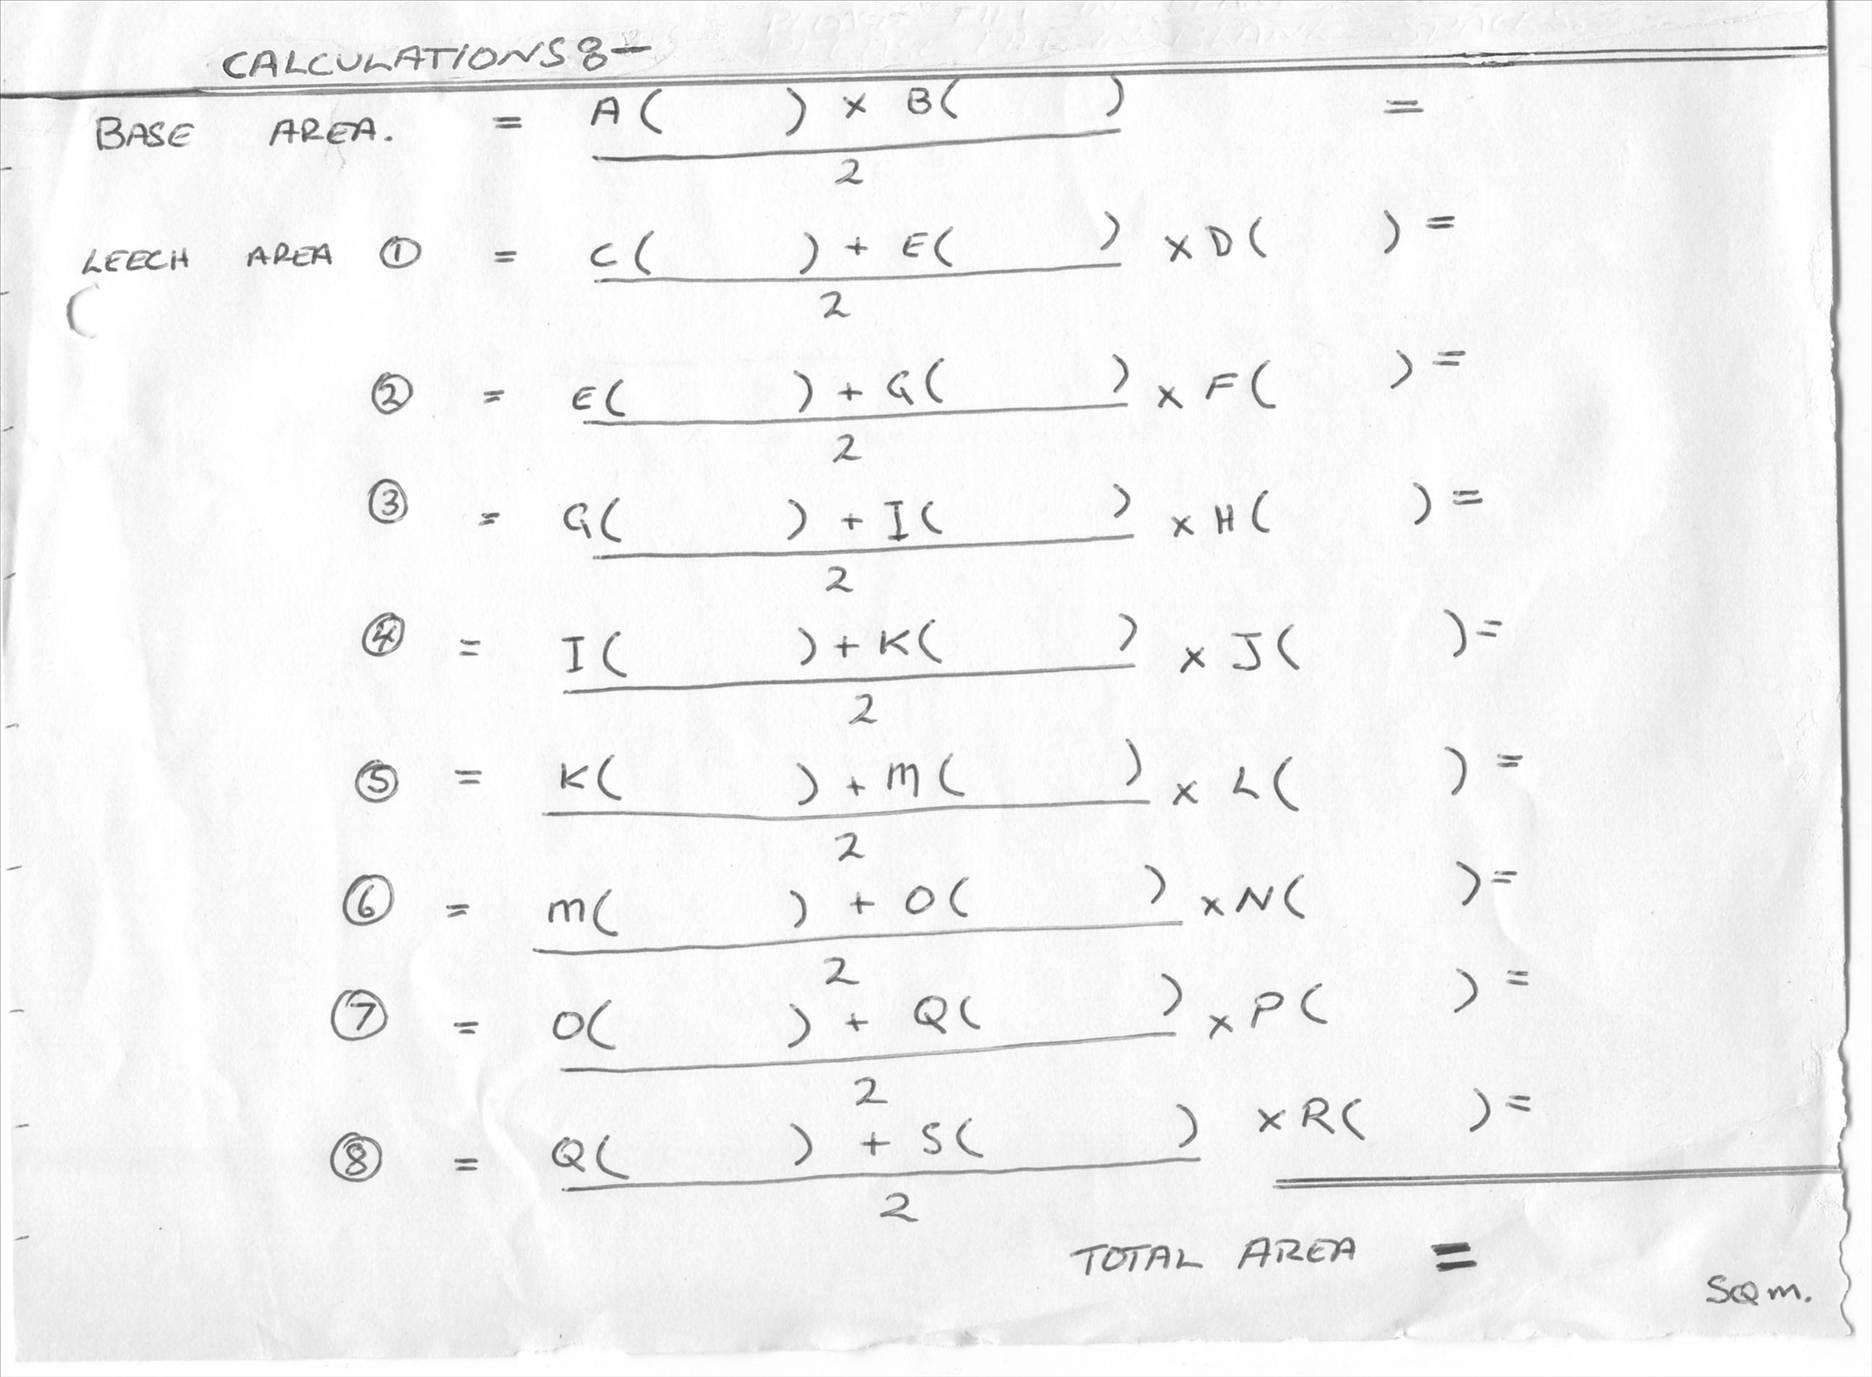 CALCULATIONS :-
BASE AREA. = A ( ) x B ( ) =
2
LEECH AREA ① = C ( ) + E ( ) x D ( ) =
2
② = E ( ) + G ( ) x F ( ) =
2
③ = G ( ) + I ( ) x H ( ) =
2
④ = I ( ) + K ( ) x J ( ) =
2
⑤ = K ( ) + M ( ) x L ( ) =
2
⑥ = M ( ) + O ( ) x N ( ) =
2
⑦ = O ( ) + Q ( ) x P ( ) =
2
⑧ = Q ( ) + S ( ) x R ( ) =
2
TOTAL AREA =
SQ m.